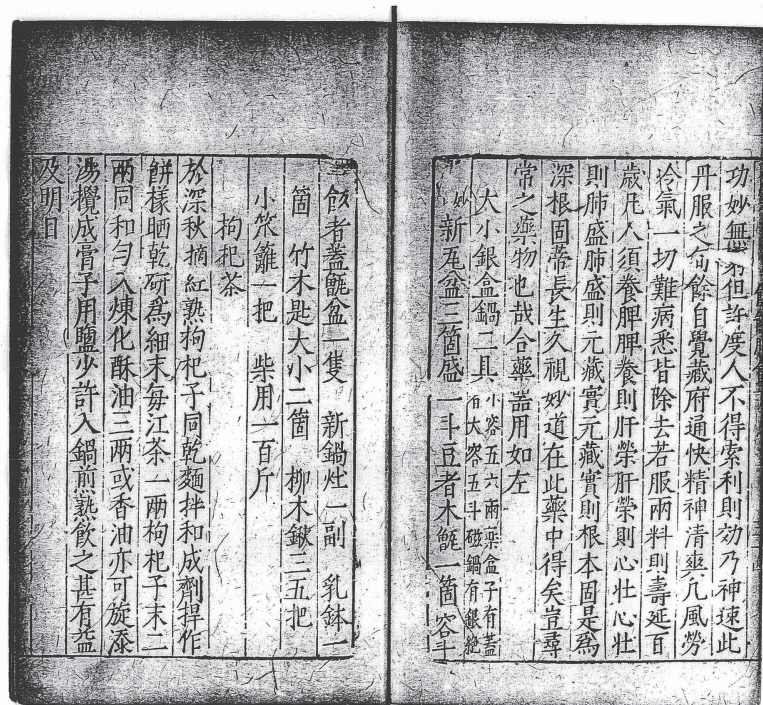 功妙無窮但許度人不得索利則効乃神速此
丹服之旬餘自覺藏府通快精神清爽凡風勞
冷氣一切難病悉皆除去若服兩料則壽延百
歲凡人須養脾脾養則肝榮肝榮則心壯心壯
則肺盛肺盛則元藏實元藏實則根本固是爲
深根固蔕長生久視妙道在此藥中得矣豈尋
常之藥物也哉合藥器用如左
大小銀盒鍋二具小容五六兩藥盒子有蓋
大容五斗磁鍋有銀絶
新瓦盆三箇盛一斗豆者木甑一箇容斗
飯者蓋甑盆一隻 新鍋灶一副 乳鉢一
箇 竹木匙大小二箇 柳木鍬三五把
小笊籬一把 柴用一百斤
枸杞茶
於深秋摘紅熟枸杞子同乾麵拌和成劑捍作
餅樣晒乾研爲細末每江茶一兩枸杞子末二
兩同和勻入煉化酥油三兩或香油亦可旋添
湯攪成膏子用鹽少許入鍋煎熟飲之甚有益
及明目